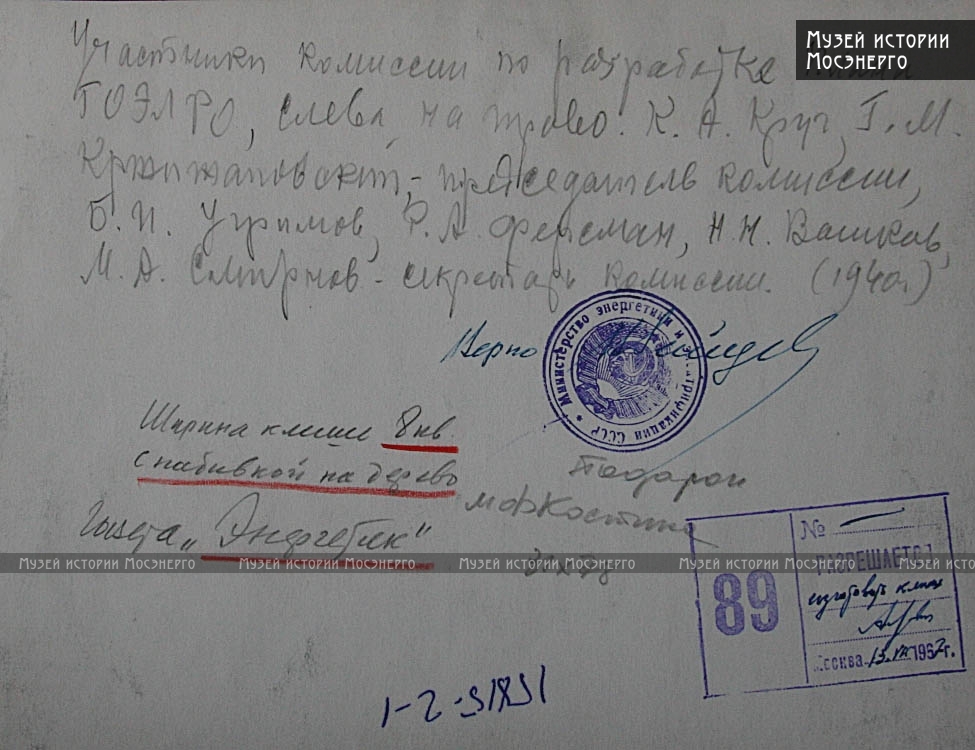 Музей истории
Мосэнерго
Участники комиссии по разработке плана
ГОЭЛРО, слева на право: К. А. Круг, Г. М.
Кржижановский, - председатель комиссии,
Б. И. Угримов, Р. А. Ферсман, Н. Н. Вашков,
М. А. Смирнов - секретарь комиссии. (1940г)
Верно
Министерство энергетики и электрификации СССР
Ширина клише 8 кв.
с набивкой на дерево
Подарок
Газета „Энергетик"
Музей истории Мосэнерго Музей истории Мосэнерго Музей истории Мосэнерго Музей истории Мосэнерго
89
№ —
РАЗРЕШАЕТСЯ
изготовить клише
Москва 13 VII 1967г.
1-2-5/851